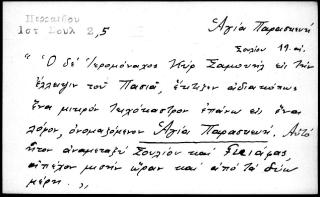 Περραιβού
1στ Σουλ 2,5
Ἁγία Παρασκευή
Σουλίου 19 αἰ.
"Ὁ δέ Ἱερομόναχος Κύρ Σαμουήλ εἰς τήν
ἔλλειψιν τοῦ Πασιᾶ, ἔκτιζεν ἀδιακόπως
ἕνα μικρόν τειχόκαστρον ἐπάνω εἰς ἕναν
λόφον, ὀνομαζόμενον Ἁγία Παρασκευή. Αὐτό
ἦτον ἀναμεταξύ Σουλίου καί Κιάφας,
ἀπέχον μισήν ὥραν καί ἀπό τά δύω
μέρη. „